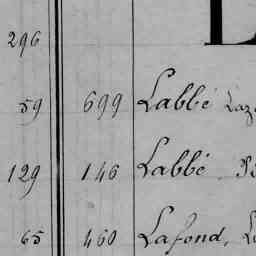 296 L
59 699 Labbé
129 146 Labbé
65 460 Lafond,